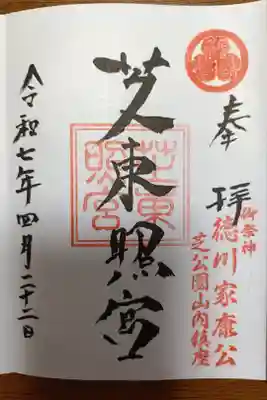 奉拝
御祭神
徳川家康公
芝公園山内鎮座
芝東照宮
芝東照宮
令和七年四月二十二日